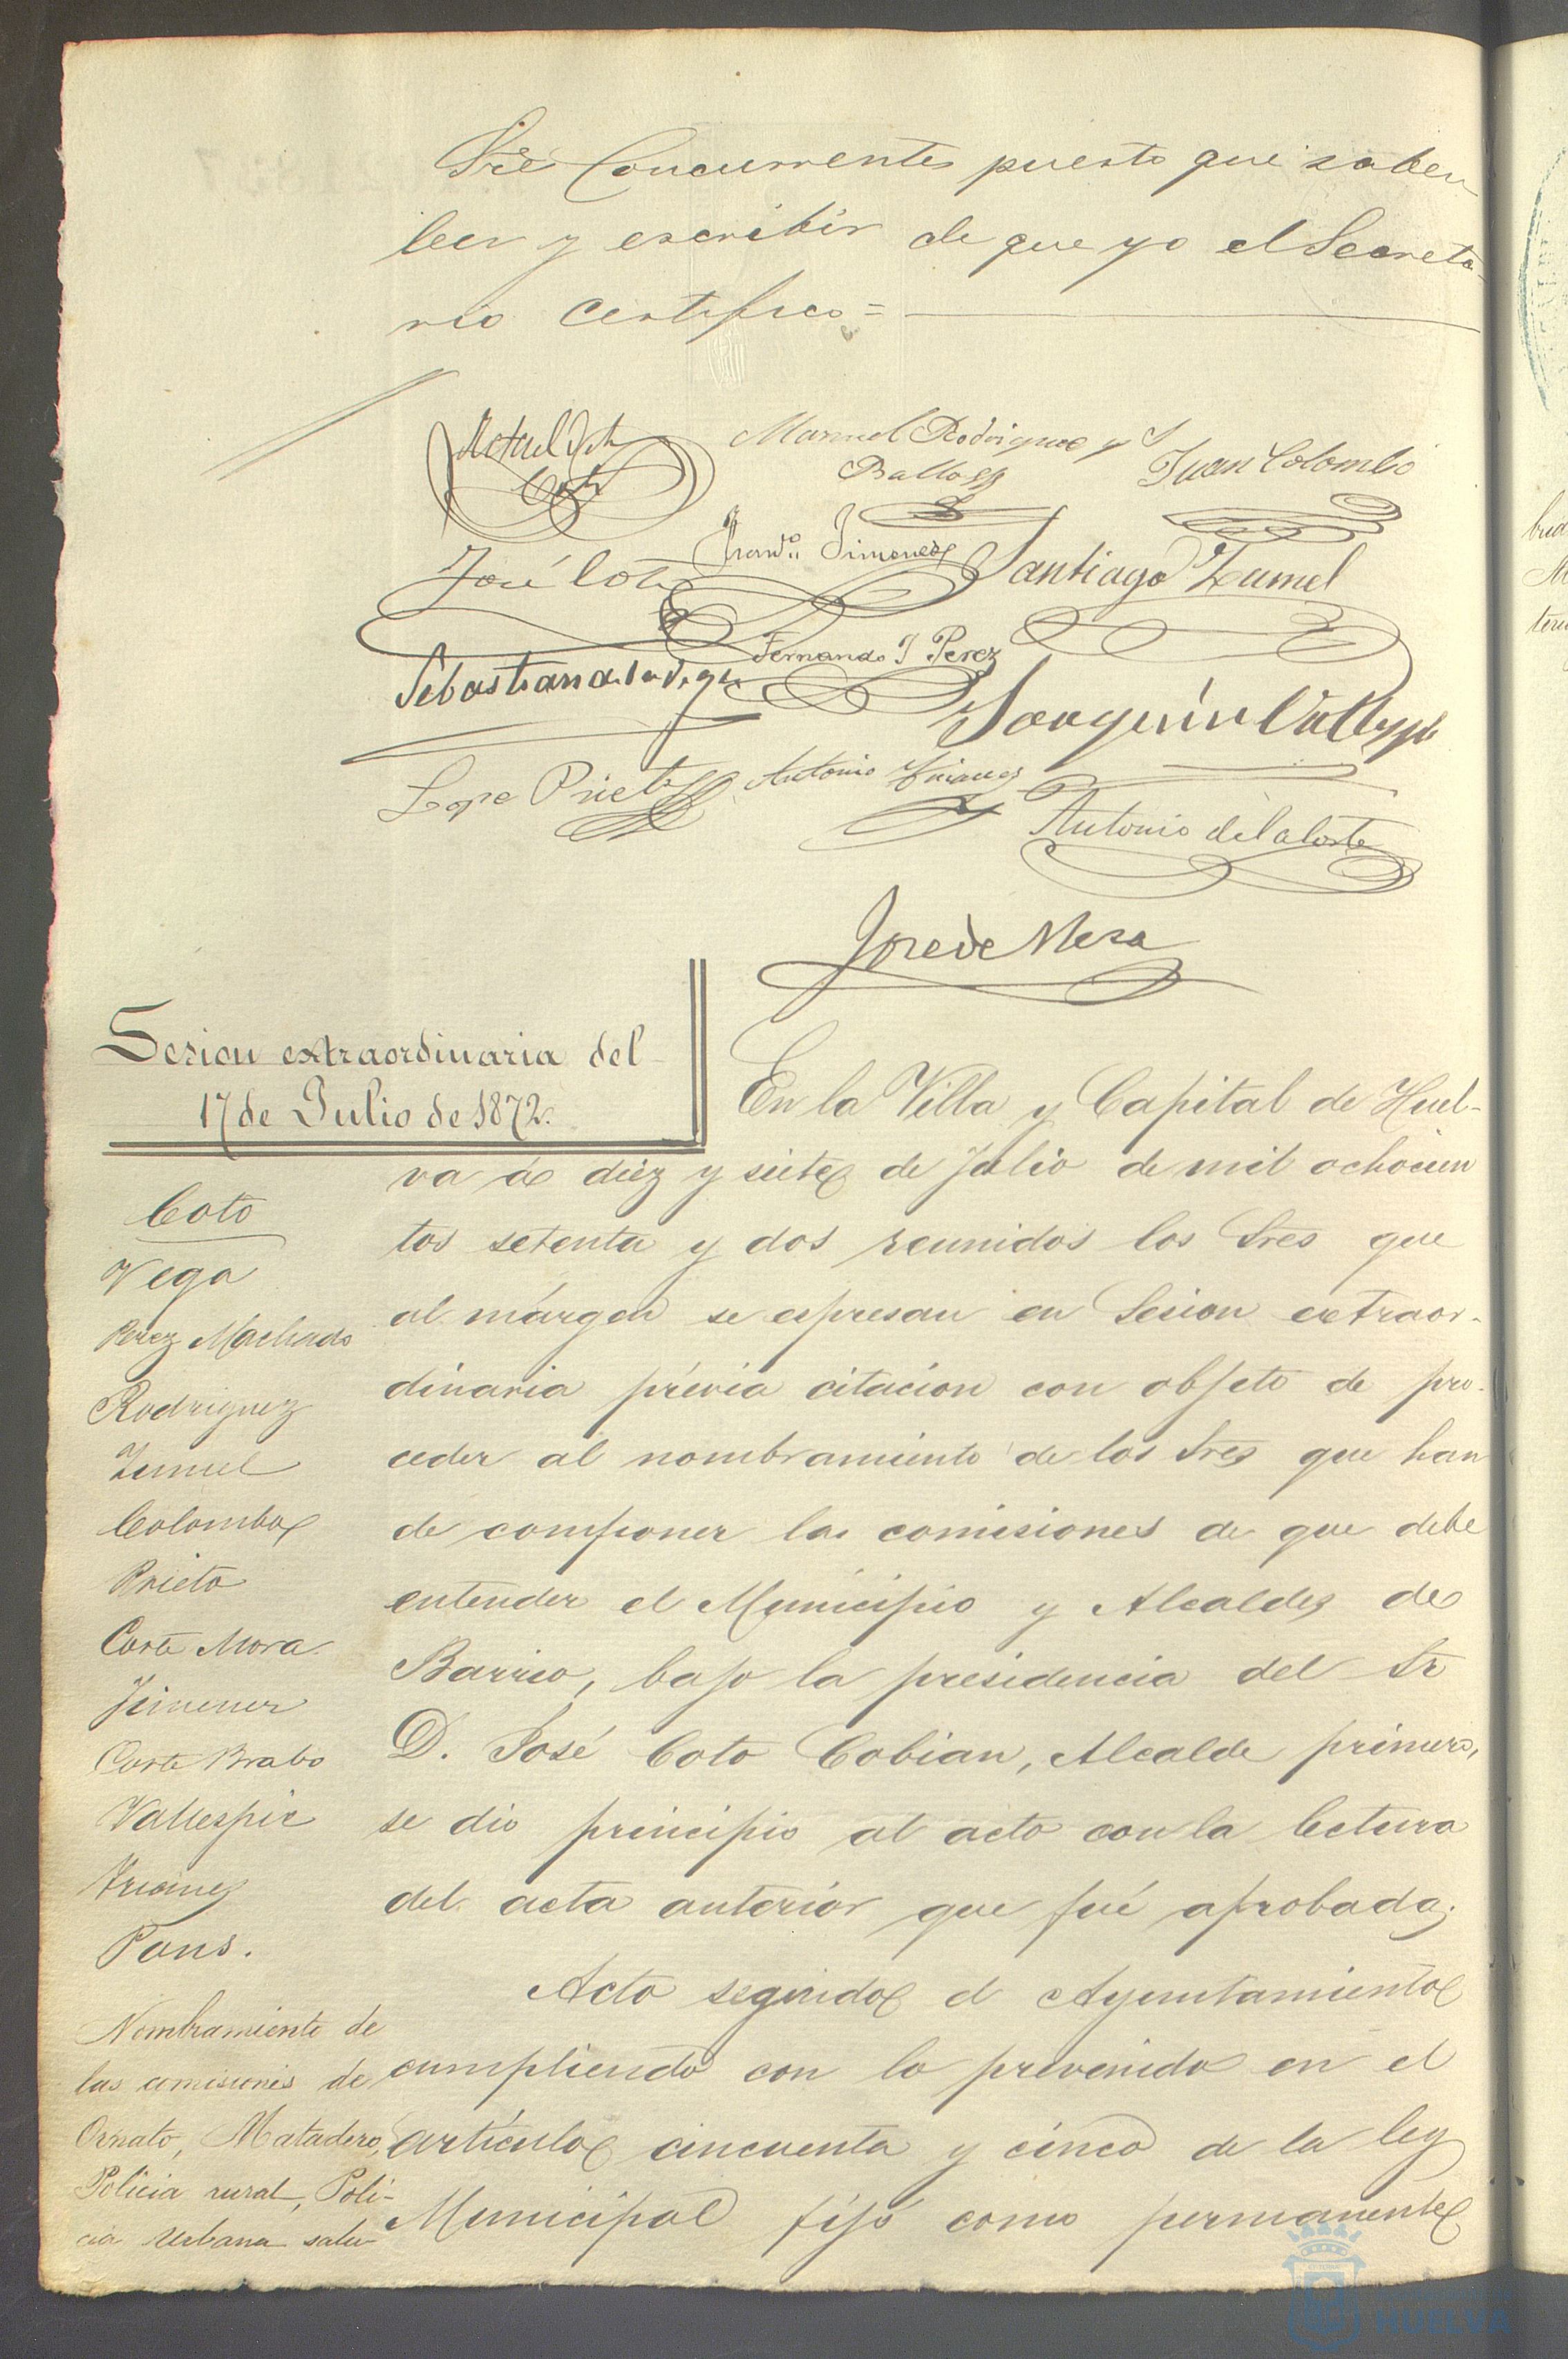 Sres Concurrentes puesto que saben
leer y escribir de que yo el Secreta-
rio Certifico =
Manuel Rodriguez y
Juan Colombo
José Coto
Jimenez
Santiago Zumel
Fernando J Perez
Sebastian de la Vega
Joaquin Vallespin
Lope Prieto
Antonio Trianes
Antonio de la Corte
Jose de Mesa
Sesion extraordinaria del
17 de Julio de 1872.
Coto
Vega
Perez Machado
Rodriguez
Zumel
Colombo
Prieto
Corte Mora
Jimenez
Corte Brabo
Vallespin
Trianes
Pons.
Nombramiento de
las comisiones de
Ornato, Matadero,
Policia rural, Poli-
cia Urbana salu-
En la Villa y Capital de Huel-
va a diez y siete de Julio de mil ochocien
tos setenta y dos reunidos los Sres que
al márgen se espresan en Sesion extraor-
dinaria prévia citacion con objeto de pro-
ceder al nombramiento de los Sres que han
de componer las comisiones de que debe
entender el Municipio y Alcaldes de
Barrio, bajo la presidencia del Sr
D. José Coto Cobian, Alcalde primero,
se dio principio al acto con la lectura
del acta anterior que fué aprobada.
Acto seguido el Ayuntamiento
cumpliendo con lo prevenido en el
artículo cincuenta y cinco de la ley
Municipal fijó como permanente
HUELVA